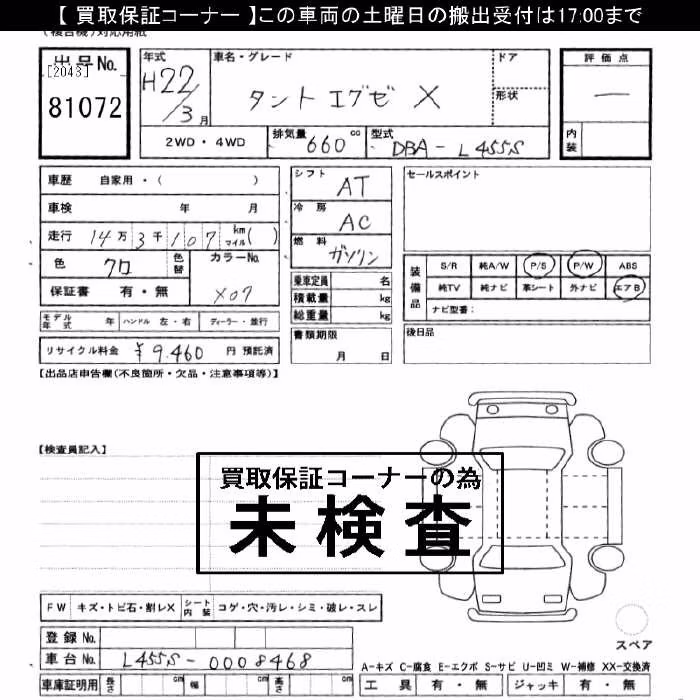 【 買取保証コーナー 】この車両の土曜日の搬出受付は17:00まで
(複合機)対応用紙
出品No.
[2043]
81072
年式
H22/3月
車名・グレード
タント エグゼ X
ドア
形状
評価点
―
内装
2WD・4WD
排気量 660 cc
型式 DBA-L455S
車歴 自家用・( )
車検 年 月
走行 14万3千107 km マイル( )
色 クロ
色替
カラーNo.
X07
保証書 有・無
モデル年式 年
ハンドル 左・右
ディーラー・並行
リサイクル料金 ¥9,460 円 預託済
シフト AT
冷房 AC
燃料 ガソリン
乗車定員 名
積載量 kg
総重量 kg
書類期限
月 日
セールスポイント
装備品
S/R 純A/W P/S P/W ABS
純TV 純ナビ 革シート 外ナビ エアB
ナビ型番:
後日品
【出品店申告欄(不良箇所・欠品・注意事項等)】
【検査員記入】
買取保証コーナーの為
未検査
FW キズ・トビ石・割レX
シート内装 コゲ・穴・汚レ・シミ・破レ・スレ
登録No.
車台No. L455S-0008468
車庫証明用 長さ cm 幅 cm 高さ cm
スペア
A-キズ C-腐食 E-エクボ S-サビ U-凹ミ W-補修 XX-交換済
工具 有・無 ジャッキ 有・無